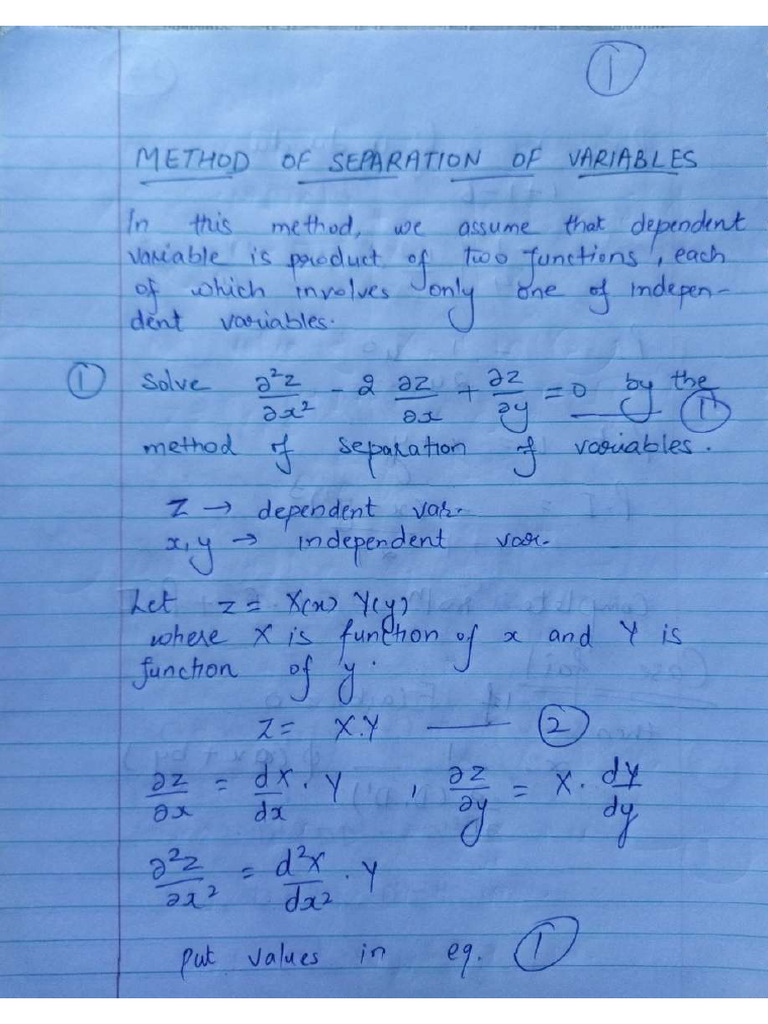 ①
METHOD OF SEPARATION OF VARIABLES
In this method, we assume that dependent
variable is product of two functions, each
of which involves only one of indepen-
dent variables.
① Solve ∂²z/∂x² - 2 ∂z/∂x + ∂z/∂y = 0 by the — ①
method of separation of variables.
z → dependent var.
x, y → independent var.
Let z = X(x) Y(y)
where X is function of x and Y is
function of y.
z = X.Y — ②
∂z/∂x = dX/dx · Y , ∂z/∂y = X · dY/dy
∂²z/∂x² = d²X/dx² · Y
put values in eq. ①